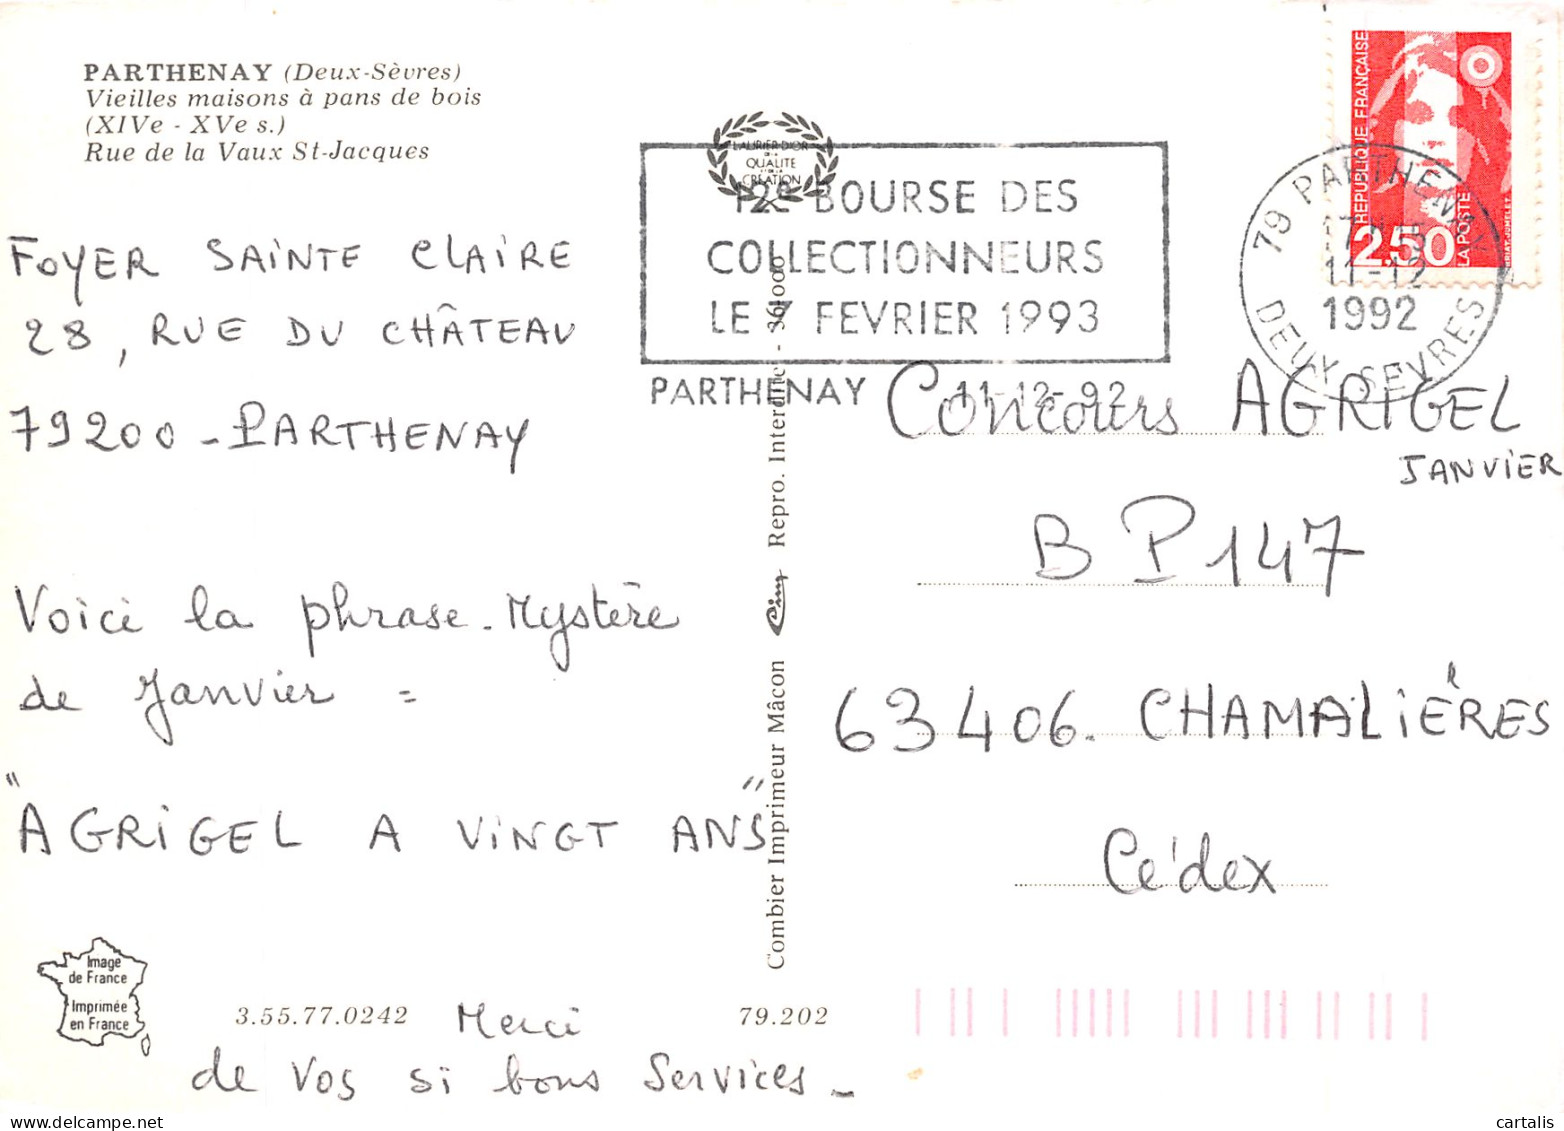 PARTHENAY (Deux-Sèvres)
Vieilles maisons à pans de bois
(XIVe - XVe s.)
Rue de la Vaux St-Jacques
LAURIER D'OR
QUALITÉ
CRÉATION
12e BOURSE DES
COLLECTIONNEURS
LE 7 FEVRIER 1993
PARTHENAY 11-12-92
REPUBLIQUE FRANÇAISE
2,50
LA POSTE
79 PARTHENAY
11-12
1992
DEUX-SEVRES
FOYER SAINTE CLAIRE
28, RUE DU CHÂTEAU
79200 - PARTHENAY
Voici la phrase. Mystère
de Janvier =
"AGRIGEL A VINGT ANS"
Merci
de vos si bons services -
Image
de France
Imprimée
en France
3.55.77.0242
79.202
Combier Imprimeur Mâcon Cim Repro. Interdite - 361000
Concours AGRIGEL
JANVIER
BP 147
63406. CHAMALIÈRES
Cédex
cartalis
www.delcampe.net